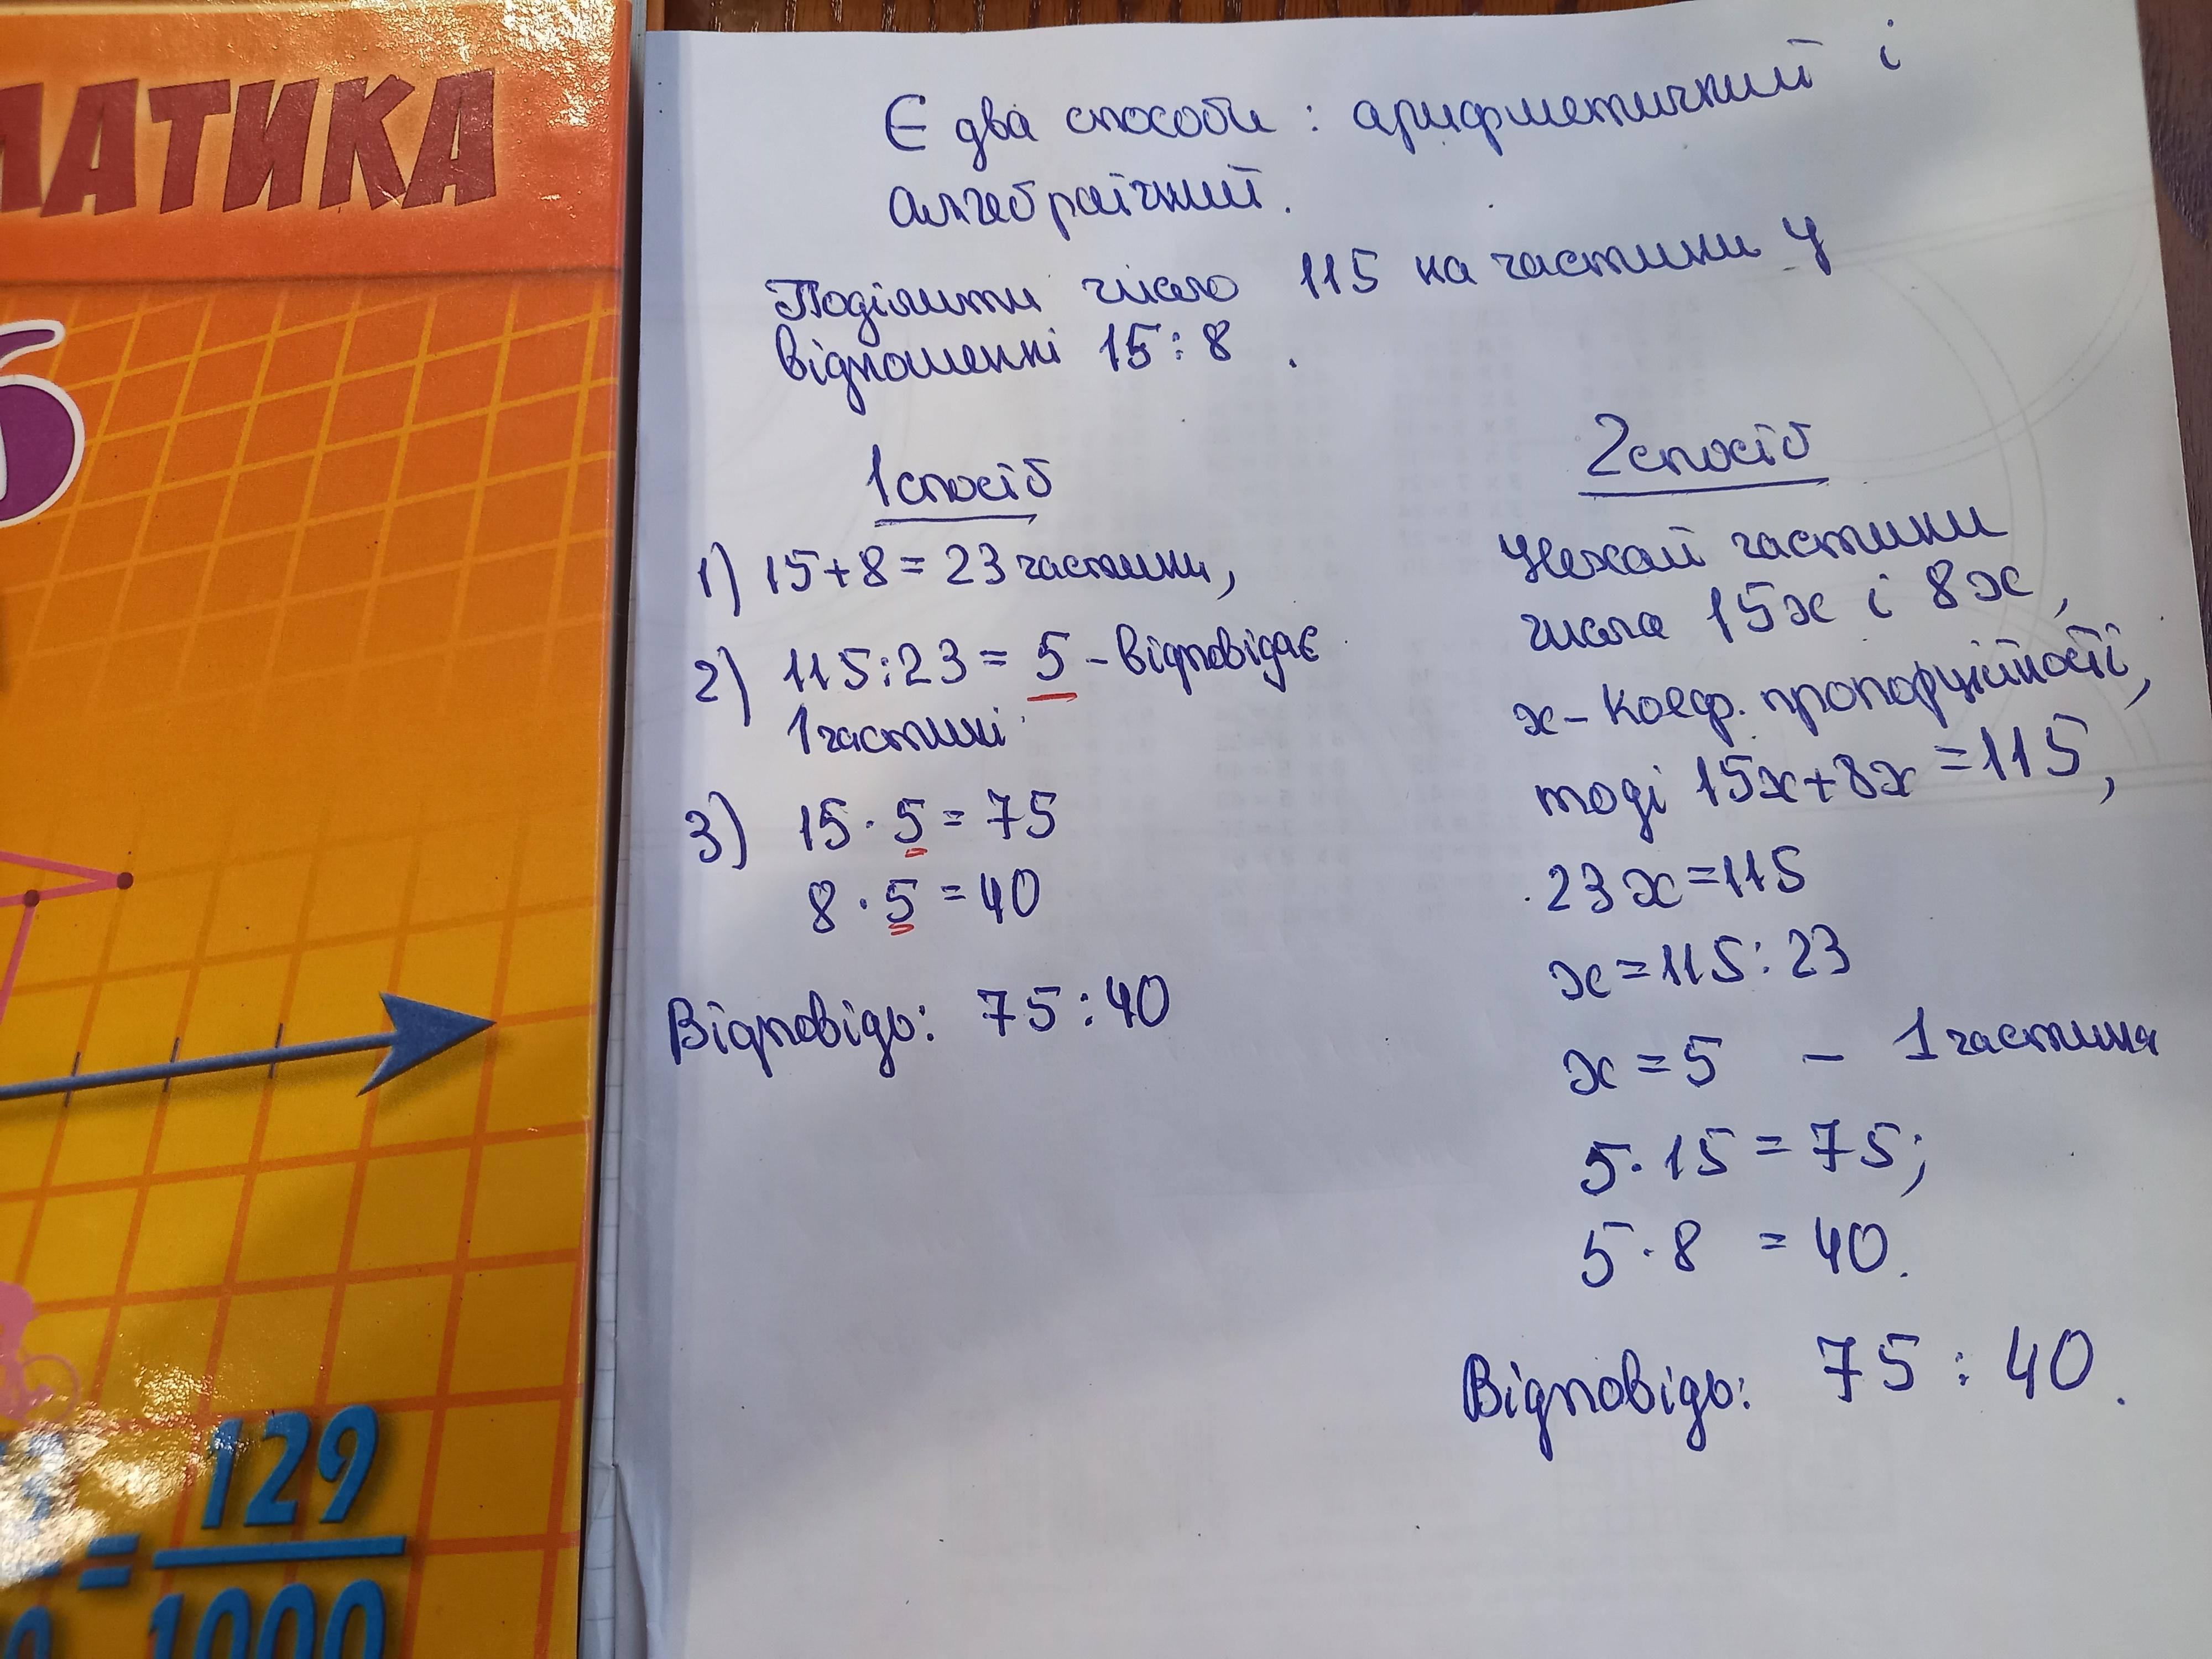 МАТИКА
6
= 129
1000
Є два способи: арифметичний і
алгебраїчний.
Поділити число 115 на частини у
відношенні 15:8.
1 спосіб
1) 15+8=23 частини,
2) 115:23=5 - відповідає
1 частині
3) 15·5=75
8·5=40
Відповідь: 75:40
2 спосіб
Нехай частини
числа 15x і 8x,
x - коеф. пропорційності,
тоді 15x+8x=115,
23x=115
x=115:23
x=5 - 1 частина
5·15=75;
5·8=40.
Відповідь: 75:40.